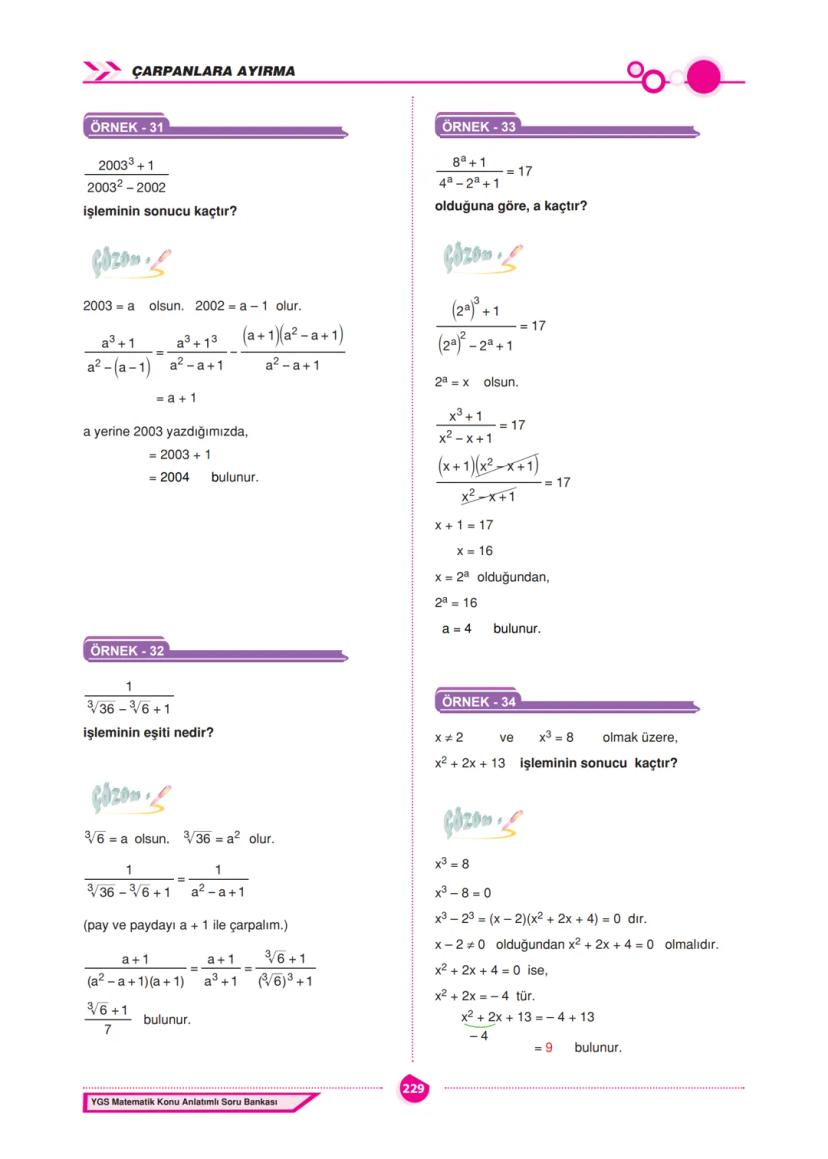 ÇARPANLARA AYIRMA
ÖRNEK - 31
2003³ + 1
2003² – 2002
işleminin sonucu kaçtır?
Çözüm
2003 = a olsun. 2002 = a – 1 olur.
a³ + 1 / a² – (a – 1) = a³ + 1³ / a² – a + 1 – (a + 1)(a² – a + 1) / a² – a + 1
= a + 1
a yerine 2003 yazdığımızda,
= 2003 + 1
= 2004 bulunur.
ÖRNEK - 32
1
∛36 – ∛6 + 1
işleminin eşiti nedir?
Çözüm
∛6 = a olsun. ∛36 = a² olur.
1 / ∛36 – ∛6 + 1 = 1 / a² – a + 1
(pay ve paydayı a + 1 ile çarpalım.)
a + 1 / (a² – a + 1)(a + 1) = a + 1 / a³ + 1 = ∛6 + 1 / (∛6)³ + 1
∛6 + 1 / 7 bulunur.
ÖRNEK - 33
8ᵃ + 1 / 4ᵃ – 2ᵃ + 1 = 17
olduğuna göre, a kaçtır?
Çözüm
(2ᵃ)³ + 1 / (2ᵃ)² – 2ᵃ + 1 = 17
2ᵃ = x olsun.
x³ + 1 / x² – x + 1 = 17
(x + 1)(x² – x + 1) / x² – x + 1 = 17
x + 1 = 17
x = 16
x = 2ᵃ olduğundan,
2ᵃ = 16
a = 4 bulunur.
ÖRNEK - 34
x ≠ 2 ve x³ = 8 olmak üzere,
x² + 2x + 13 işleminin sonucu kaçtır?
Çözüm
x³ = 8
x³ – 8 = 0
x³ – 2³ = (x – 2)(x² + 2x + 4) = 0 dır.
x – 2 ≠ 0 olduğundan x² + 2x + 4 = 0 olmalıdır.
x² + 2x + 4 = 0 ise,
x² + 2x = – 4 tür.
x² + 2x + 13 = – 4 + 13
– 4
= 9 bulunur.
229
YGS Matematik Konu Anlatımlı Soru Bankası